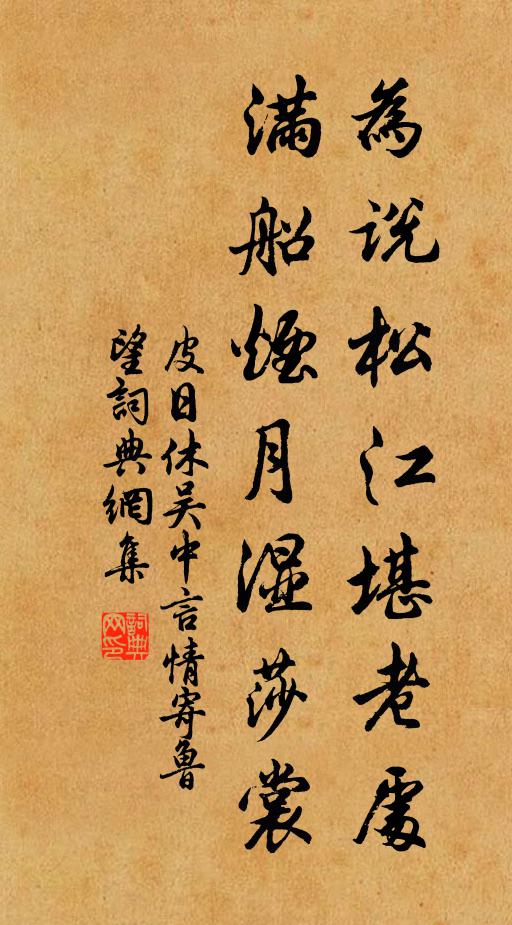 為說松江堪老處
滿船煙月濕莎裳
皮日休吳中言情寄魯
望詞典網集
詞典網印